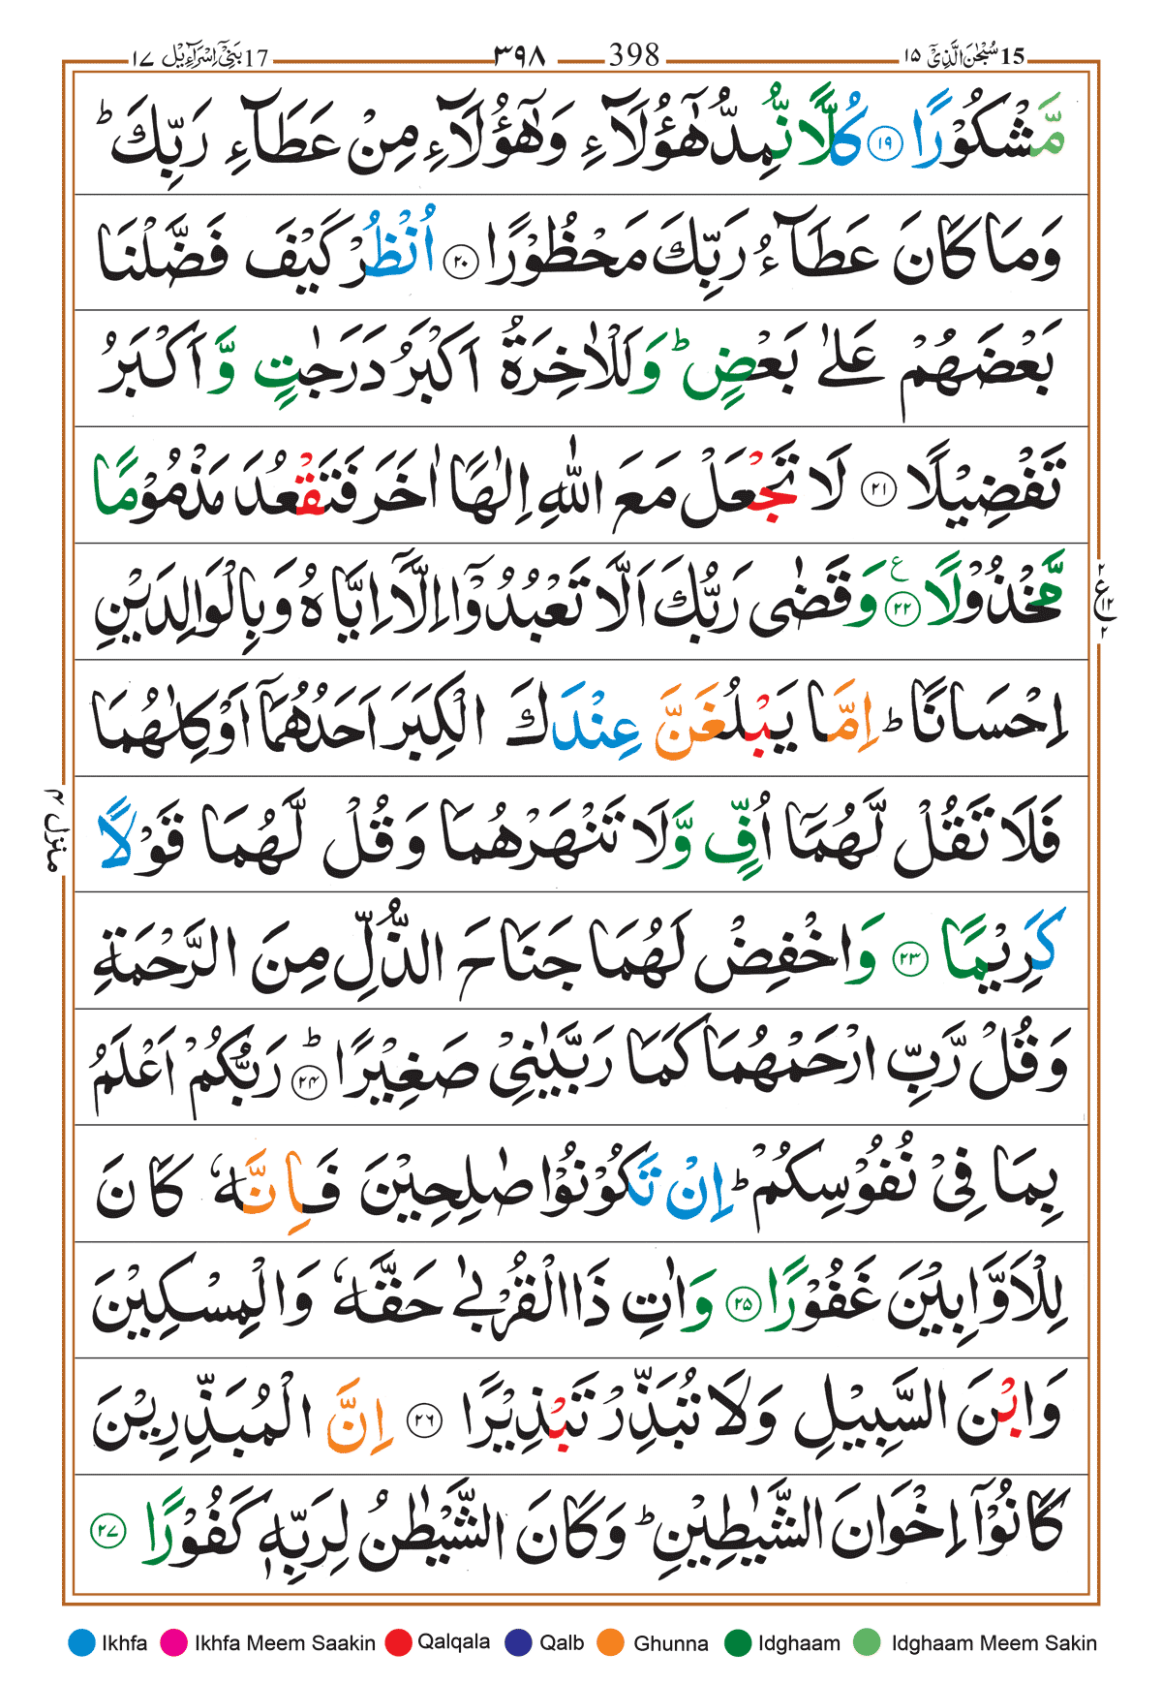 15 سُبْحٰنَ الَّذِیْۤ ۱۵ 398 ۳۹۸ 17 بَنِیْۤ اِسْرَآءِیْل ۱۷
مَّشْكُوْرًا ۱۹ كُلًّا نُّمِدُّ هٰۤؤُلَآءِ وَهٰۤؤُلَآءِ مِنْ عَطَآءِ رَبِّكَ ؕ
وَمَا كَانَ عَطَآءُ رَبِّكَ مَحْظُوْرًا ۲۰ اُنْظُرْ كَیْفَ فَضَّلْنَا
بَعْضَهُمْ عَلٰی بَعْضٍ ؕ وَلَلْاٰخِرَةُ اَكْبَرُ دَرَجٰتٍ وَّاَكْبَرُ
تَفْضِیْلًا ۲۱ لَا تَجْعَلْ مَعَ اللّٰهِ اِلٰهًا اٰخَرَ فَتَقْعُدَ مَذْمُوْمًا
مَّخْذُوْلًا ۲۲ ع وَقَضٰی رَبُّكَ اَلَّا تَعْبُدُوْۤا اِلَّاۤ اِیَّاهُ وَبِالْوَالِدَیْنِ
۲ ع ۱۲ ۲
اِحْسَانًا ؕ اِمَّا یَبْلُغَنَّ عِنْدَكَ الْكِبَرَ اَحَدُهُمَاۤ اَوْ كِلٰهُمَا
منزل ۴
فَلَا تَقُلْ لَّهُمَاۤ اُفٍّ وَّلَا تَنْهَرْهُمَا وَقُلْ لَّهُمَا قَوْلًا
كَرِیْمًا ۲۳ وَاخْفِضْ لَهُمَا جَنَاحَ الذُّلِّ مِنَ الرَّحْمَةِ
وَقُلْ رَّبِّ ارْحَمْهُمَا كَمَا رَبَّیٰنِیْ صَغِیْرًا ؕ ۲۴ رَبُّكُمْ اَعْلَمُ
بِمَا فِیْ نُفُوْسِكُمْ ؕ اِنْ تَكُوْنُوْا صٰلِحِیْنَ فَاِنَّهٗ كَانَ
لِلْاَوَّابِیْنَ غَفُوْرًا ۲۵ وَاٰتِ ذَا الْقُرْبٰی حَقَّهٗ وَالْمِسْكِیْنَ
وَابْنَ السَّبِیْلِ وَلَا تُبَذِّرْ تَبْذِیْرًا ۲۶ اِنَّ الْمُبَذِّرِیْنَ
كَانُوْۤا اِخْوَانَ الشَّیٰطِیْنِ ؕ وَكَانَ الشَّیْطٰنُ لِرَبِّهٖ كَفُوْرًا ۲۷
Ikhfa Ikhfa Meem Saakin Qalqala Qalb Ghunna Idghaam Idghaam Meem Sakin